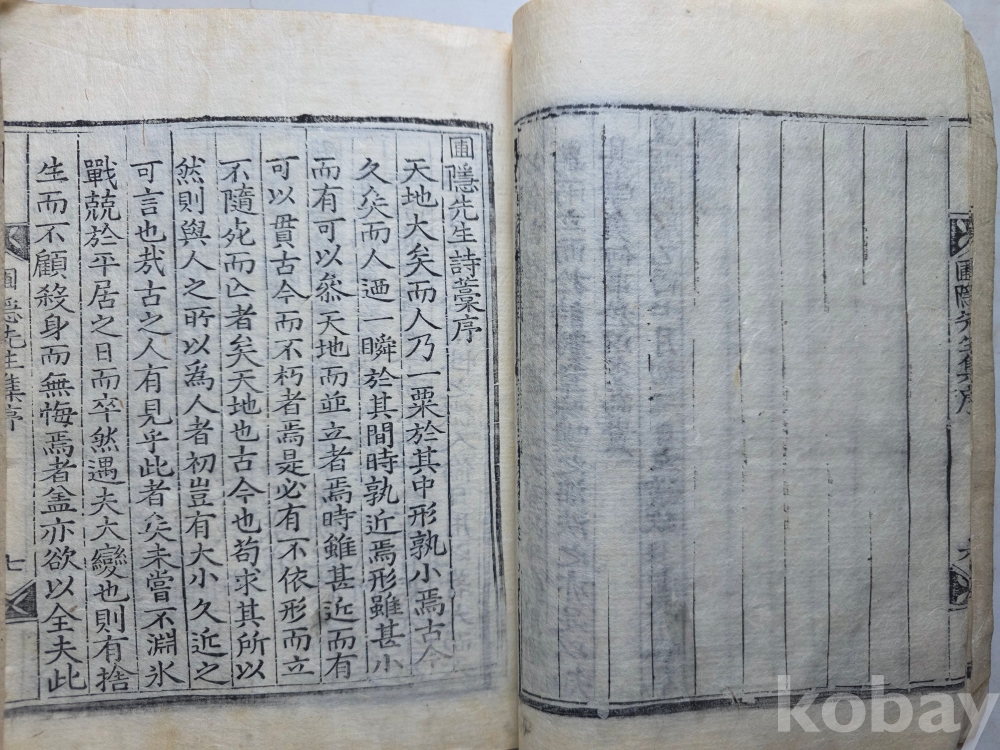 圃隱先生集序
六
圃隱先生詩藁序
天地大矣而人乃一粟於其中形孰小焉古今
久矣而人廼一瞬於其間時孰近焉形雖甚小
而有可以叅天地而並立者焉時雖甚近而有
可以貫古今而不朽者焉是必有不依形而立
不隨死而亾者矣天地也古今也苟求其所以
然則與人之所以爲人者初豈有大小久近之
可言也哉古之人有見乎此者矣未嘗不淵氷
戰兢於平居之日而卒然遇夫大變也則有捨
生而不顧殺身而無悔焉者盖亦欲以全夫此
圃隱先生集序
七
kobay